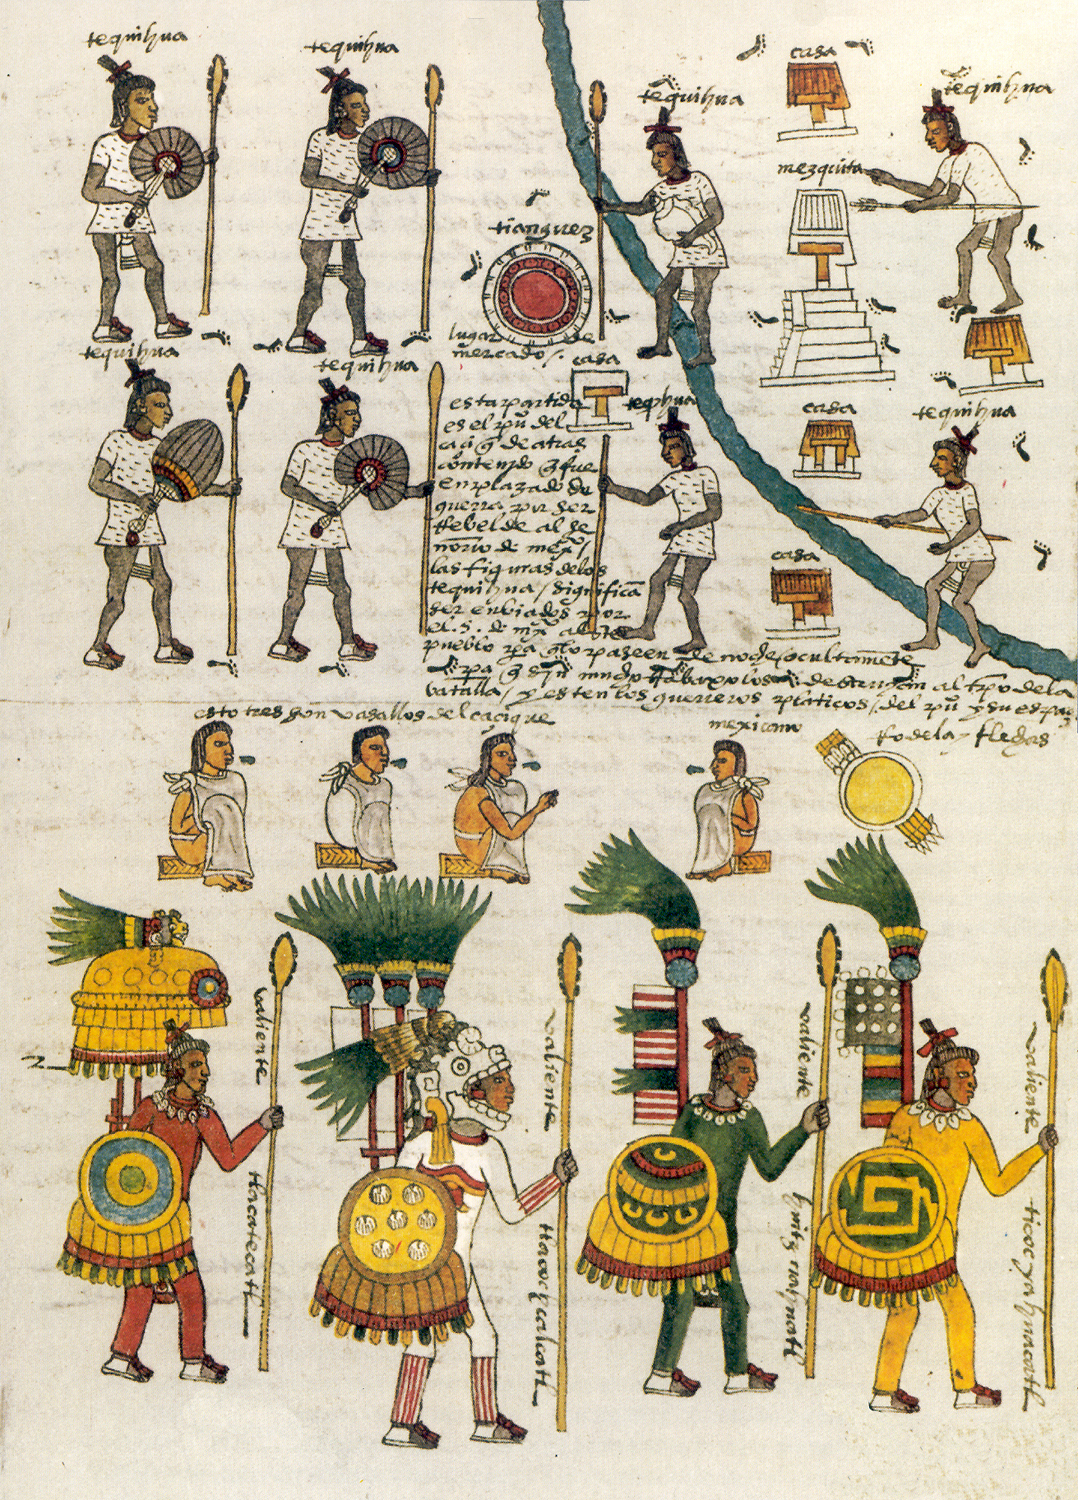 tequihua
tequihua
tequihua
casa
tequihua
mezquita
tianguez
lugar de
mercado /.
casa
tequihua
tequihua
casa
tequihua
esta partida
es el pu͞ del
caciq͞ de atras
contenido q͞ fue
enplazado de
guerra, por ser
Rebelde al se
norio de mex͞ /
las figuras de los
tequihua / significa͞
ser enbiados por
el .s. de mex͞ al
pueblo pa͞ q͞ lo paseen de noche / ocultamente
casa
batalla / y esten los guerreros platicos / del pu͞ y su
esto tres son vasallos del cacique
mexicano
Rodela y flechas
valiente
tlacatecatl
valiente
tlacochcalcatl
valiente
huitznahuatl
valiente
ticocyahuacatl